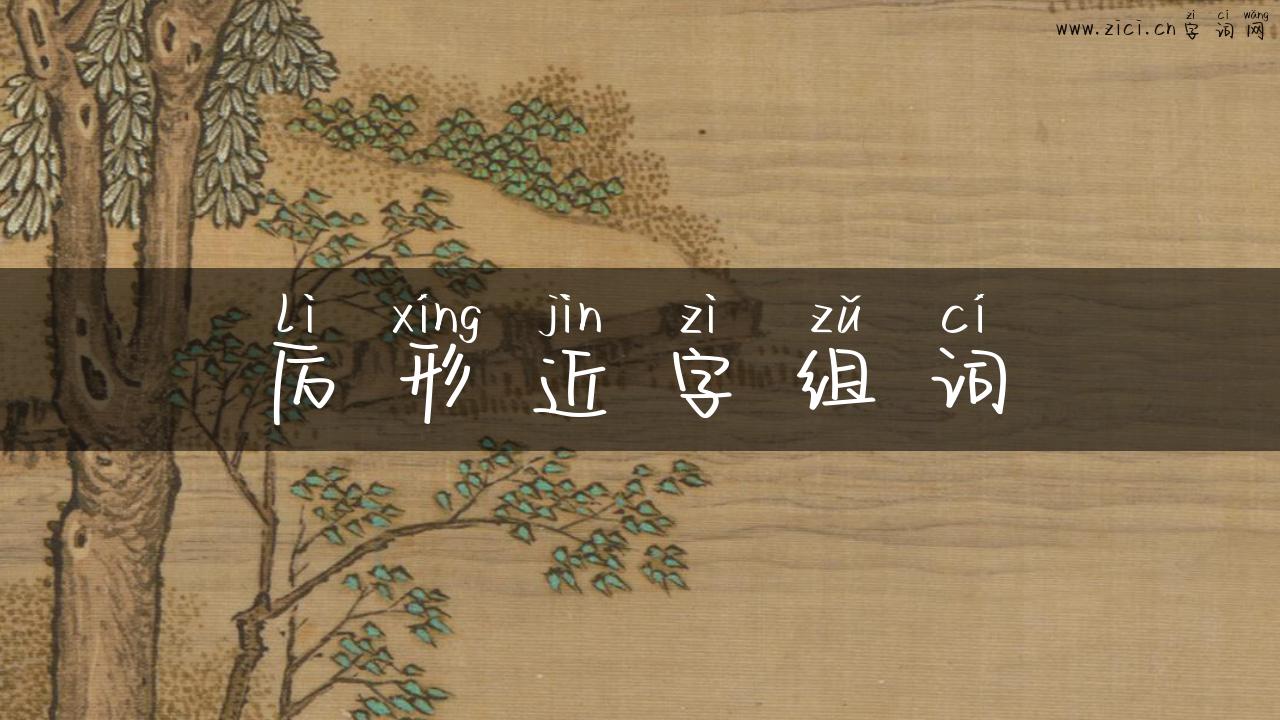 zì cí wǎng
www.zici.cn 字词网
lì xíng jìn zì zǔ cí
厉形近字组词